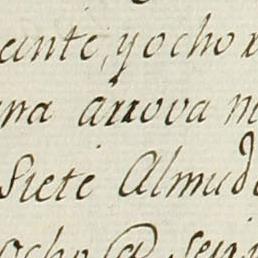 einte, y ocho
una arrova
Siete Almud
ocho @ sein